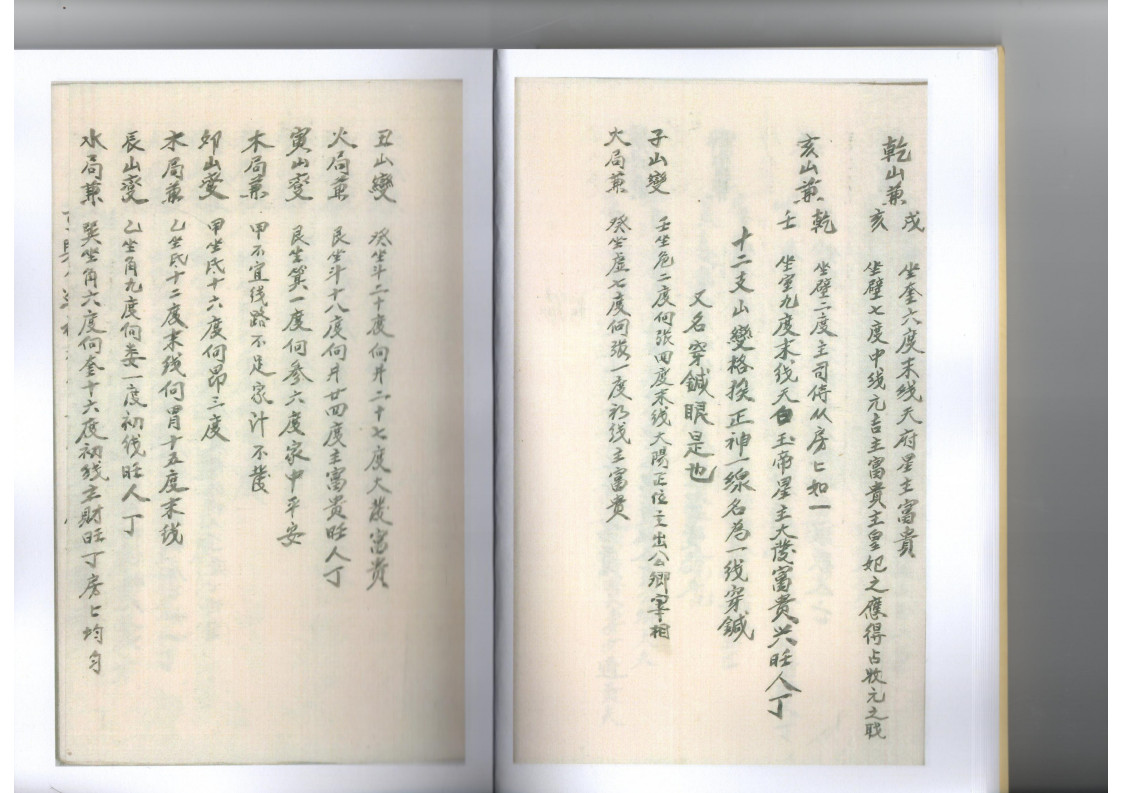 乾山兼
戌 坐奎六度末线天府星主富貴
亥 坐壁七度中线元吉主富貴主皇妃之應得占状元之戝
亥山兼
乾 坐壁二度主司侍从房匕如一
壬 坐室九度末线天白玉帝星主大发富貴兴旺人丁
十二支山變格挨正神一線名為一线穿鍼
又名穿鍼眼是也
子山變 壬坐危二度向张四度末线太陽正位主出公卿宰相
火局兼 癸坐虚七度向张一度初线主富貴
丑山變 癸坐斗二十度向井二十七度大發富貴
火局兼 艮坐斗十八度向井廿四度主富貴旺人丁
寅山变 艮坐箕一度向参六度家中平安
木局兼 甲不宜线路不足家计不發
卯山变 甲坐氐十六度向昴三度
木局兼 乙坐氐十二度末线向胃十五度末线
辰山变 乙坐角九度向娄一度初线旺人丁
水局兼 巽坐角六度向奎十六度初线主財旺丁房匕均匀